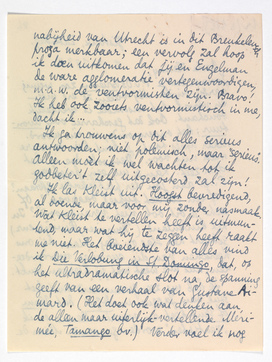 nabijheid van Utrecht is in dit Breukelen-
proza merkbaar; een vervolg zal hoop
ik doen uitkomen dat jij en Engelman
de ware agglomeratie vertegenwoordigen,
m.a.w. de ventvormisten zijn. Bravo!
Ik heb ook zooiets ventvormistisch in me,
dacht ik...
Ik ga trouwens op dit alles serieus
antwoorden; niet polemisch, maar serieus.
alleen moet ik wel wachten tot ik
godbetert zelf uitgezoterd zal zijn!
Ik las Kleist uit. Hoogst bevredigend,
al boende maar voor mij zonde, nasmaak.
Wat Kleist te vertellen heeft is uitmun-
tend, maar wat hij te zeggen heeft raakt
me niet. Het boeiendste van alles vind
ik Die Verlobung in St. Domingo, dat, op
het ultradramatische slot na, de spanning
geeft van een verhaal van Gustave Ai-
mard. (Het doet ook wat denken aan
de alleen maar uiterlijk-vertellende Méri-
mée, Tamango bv.) Verder voel ik nog